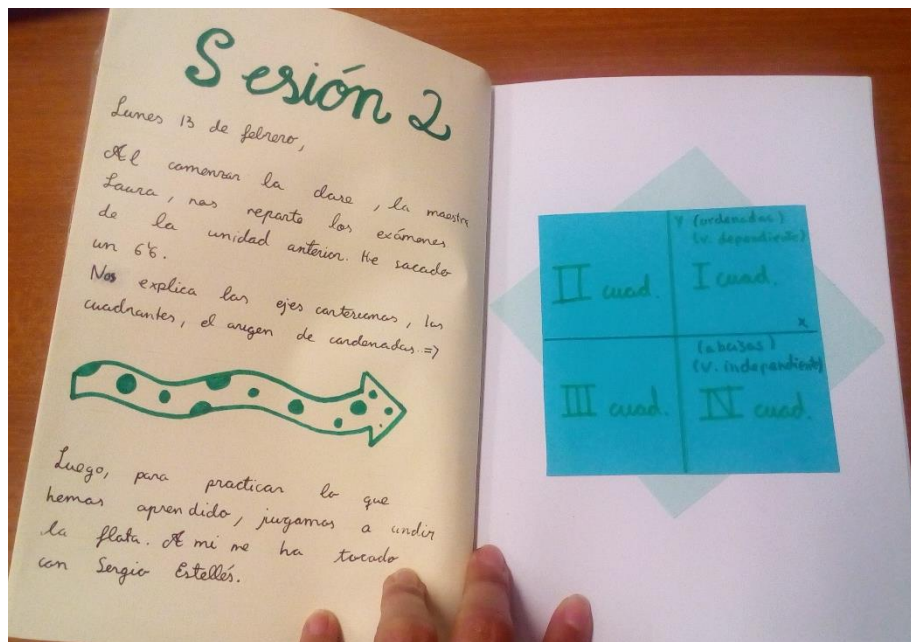 Sesión 2
Lunes 13 de febrero,
Al comenzar la clase, la maestra
Laura, nos reparte los exámenes
de la unidad anterior. He sacado
un 6'6.
Nos explica los ejes cartesianos, los
cuadrantes, el origen de cordenadas =>
Luego, para practicar lo que
hemos aprendido, jugamos a undir
la flota. A mi me ha tocado
con Sergio Estellés.
y (ordenadas)
(v. dependiente)
II cuad.
I cuad.
x
(abcisas)
(v. independiente)
III cuad.
IV cuad.